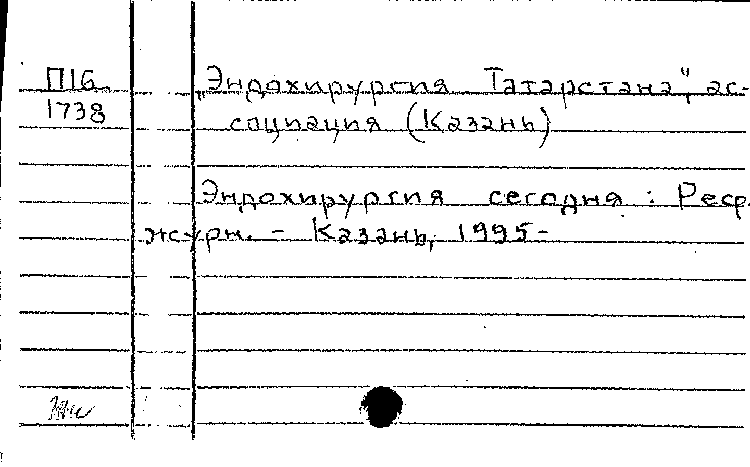 П16
1738
„Эндохирургия Татарстана", ас-
социация (Казань)
Эндохирургия сегодня : Реф.
журн. - Казань, 1995-